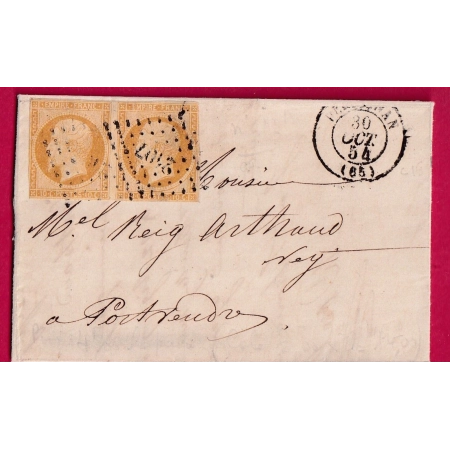 EMPIRE FRANC EMPIRE FRANC
PERPIGNAN
30
OCT.
54
(65)
Monsieur
Mel Reig Arthaud
Negt
a Portvendre